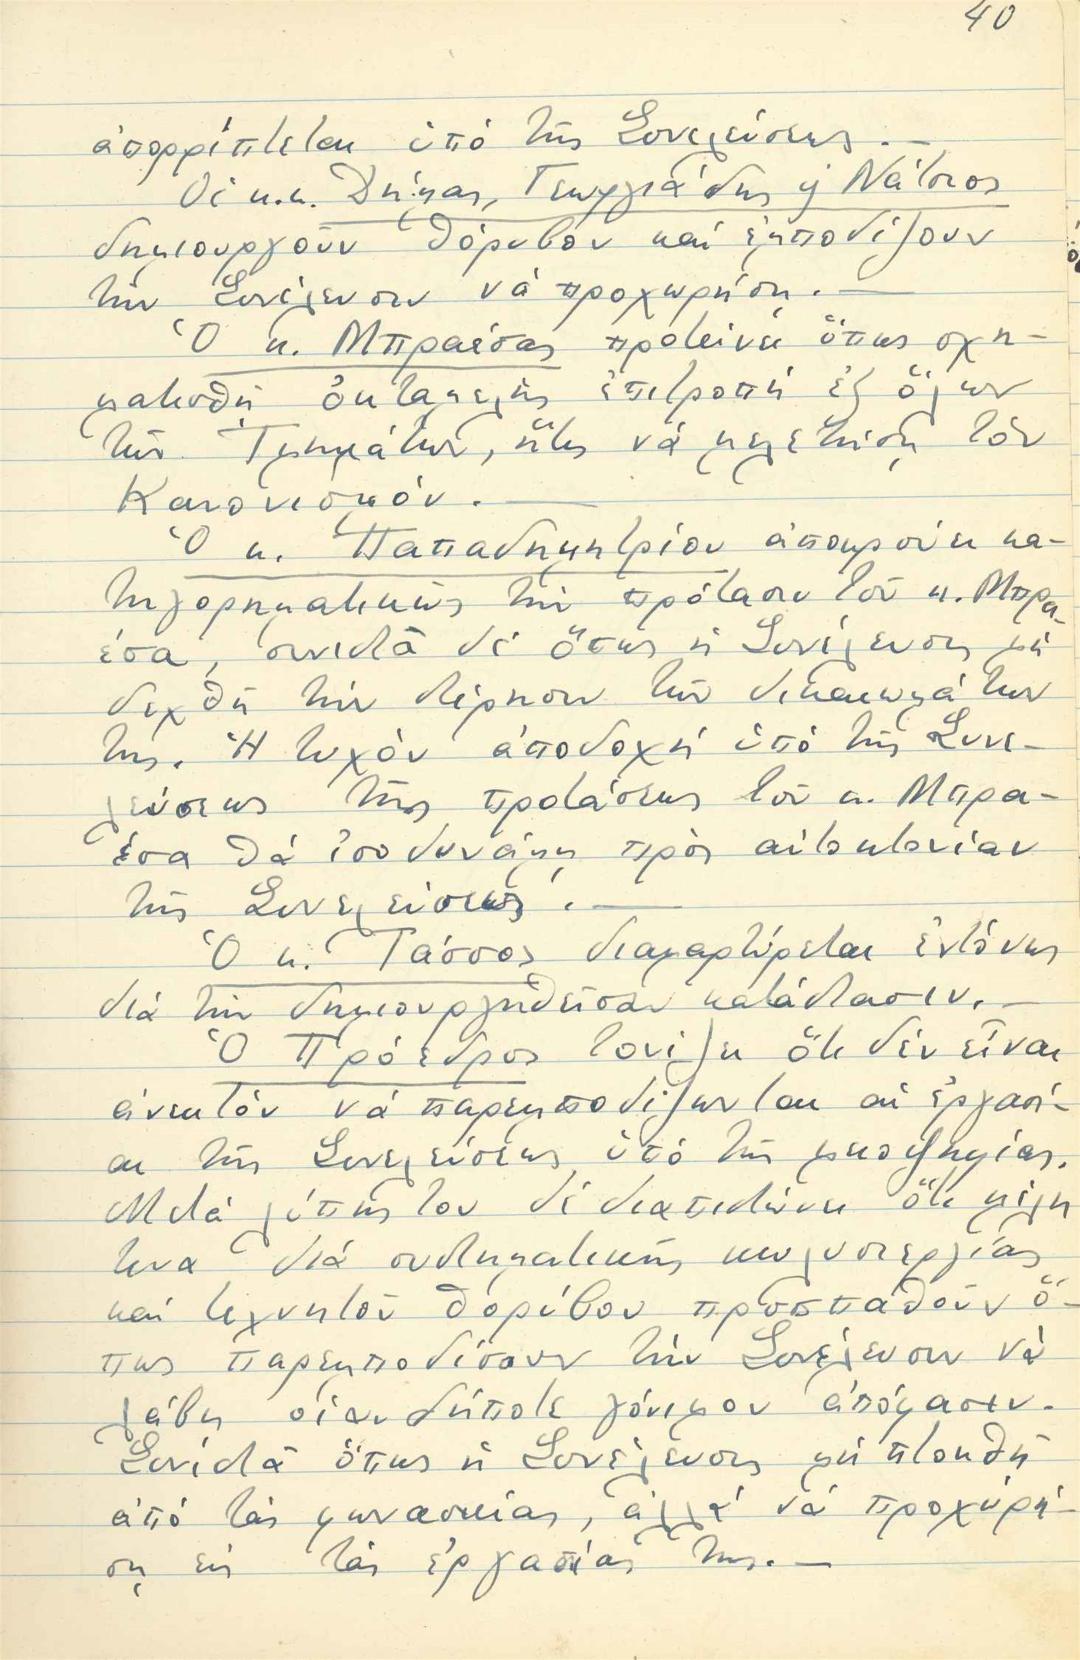 40
ἀπορρίπτεται ὑπό τῆς Συνελεύσεως.—
Οἱ κ.κ. Δήμας, Γεωργιάδης ἤ Νάτσιος
δημιουργοῦν θόρυβον καί ἐμποδίζουν
τήν Συνέλευσιν νά προχωρήση.—
Ὁ κ. Μπραέσας προτείνει ὅπως σχη-
ματισθῆ ὀκταμελής ἐπιτροπή ἐξ ὅλων
τῶν Τμημάτων, ἥτις νά μελετήση τόν
Κανονισμόν.—
Ὁ κ. Παπαδημητρίου ἀποκρούει κα-
τηγορηματικῶς τήν πρότασιν τοῦ κ. Μπρα-
έσα, συνιστᾶ δέ ὅπως ἡ Συνέλευσις μή
δεχθῆ τήν στέρησιν τῶν δικαιωμάτων
της. Ἡ τυχόν ἀποδοχή ὑπό τῆς Συνε-
λεύσεως τῆς προτάσεως τοῦ κ. Μπρα-
έσα θά ἰσοδυνάμη πρός αὐτοκτονίαν
τῆς Συνελεύσεως.—
Ὁ κ. Τάσσος διαμαρτύρεται ἐντόνως
διά τήν δημιουργηθεῖσαν κατάστασιν.—
Ὁ Πρόεδρος τονίζει ὅτι δέν εἶναι
ἀνεκτόν νά παρεμποδίζωνται αἱ ἐργασί-
αι τῆς Συνελεύσεως ὑπό τῆς μειοψηφίας.
Μετά λύπης του δέ διαπιστώνει ὅτι μέλη
τινα διά συστηματικῆς κωλυσιεργίας
καί τεχνητοῦ θορύβου προσπαθοῦν ὅ-
πως παρεμποδίσουν τήν Συνέλευσιν νά
λάβη οἱανδήποτε γόνιμον ἀπόφασιν.
Συνιστᾶ ὅπως ἡ Συνέλευσις μή πτοηθῆ
ἀπό τάς φωνασκίας, ἀλλά νά προχωρή-
ση εἰς τάς ἐργασίας της.—